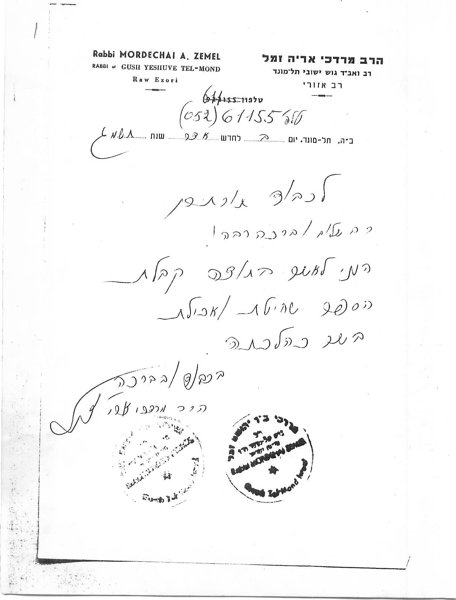 Rabbi MORDECHAI A. ZEMEL
RABBI of GUSH YESHUVE TEL-MOND
Raw Ezori
הרב מרדכי אריה זמל
רב ואב״ד גוש ישובי תל-מונד
רב אזורי
טלפון 155
(052) 61155
ב״ה, תל-מונד. יום ב לחדש אדר שנת תשמ״ג
לכבוד
שלום וברכה רבה!
הנני לאשר בתודה קבלת
הספר שחיטת ואכילת
בשר כהלכתה
בכבוד ובברכה
הרב מרדכי